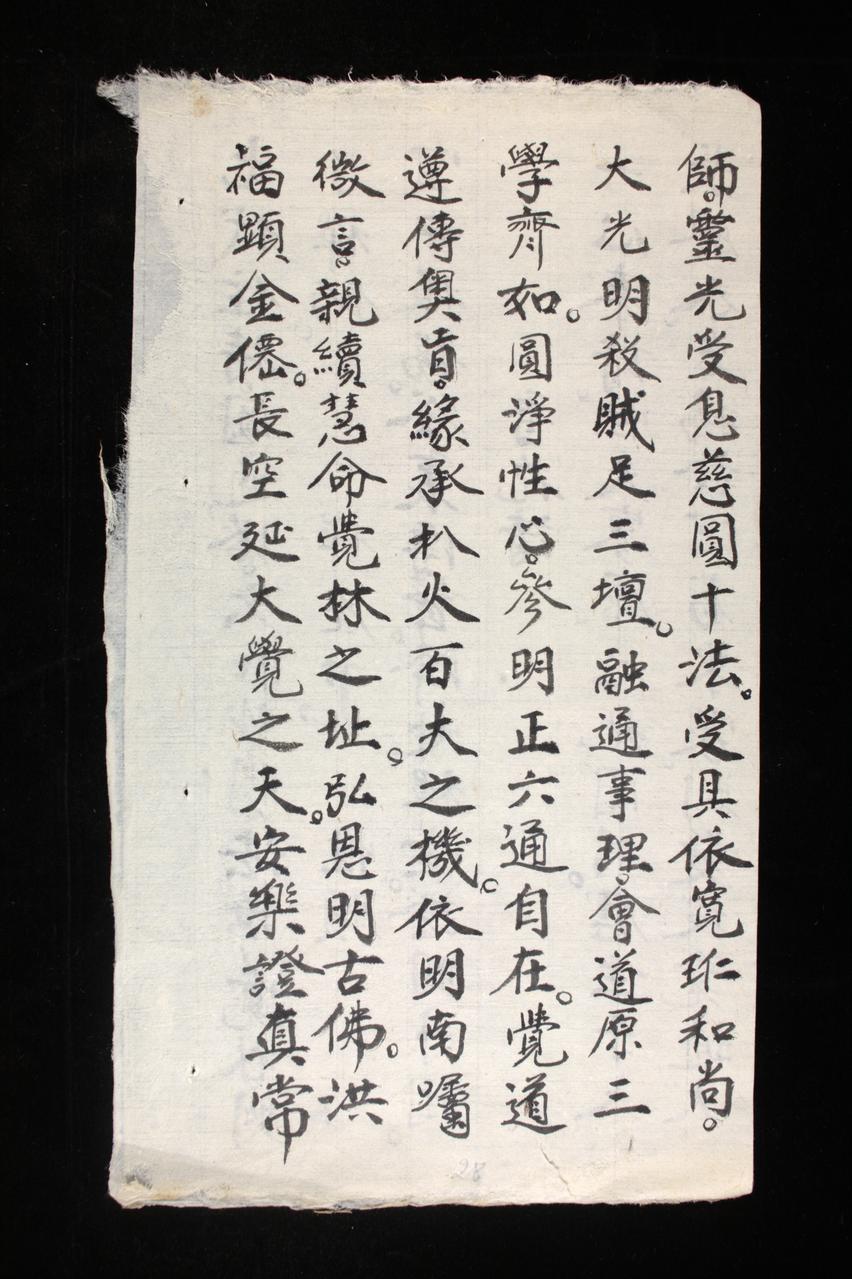 師。靈光受息慈圓十法。受具依寬玭和尚。
大光明殺賊足三壇。融通事理。會道原三
學齊如。圓淨性心。參明正六通自在。覺道
遵傳奧旨。緣承朳火百大之機。依明南囑
微言。親續慧命覺林之址。弘恩明古佛。洪
福顯金僊。長空延大覺之天。安樂證真常
28